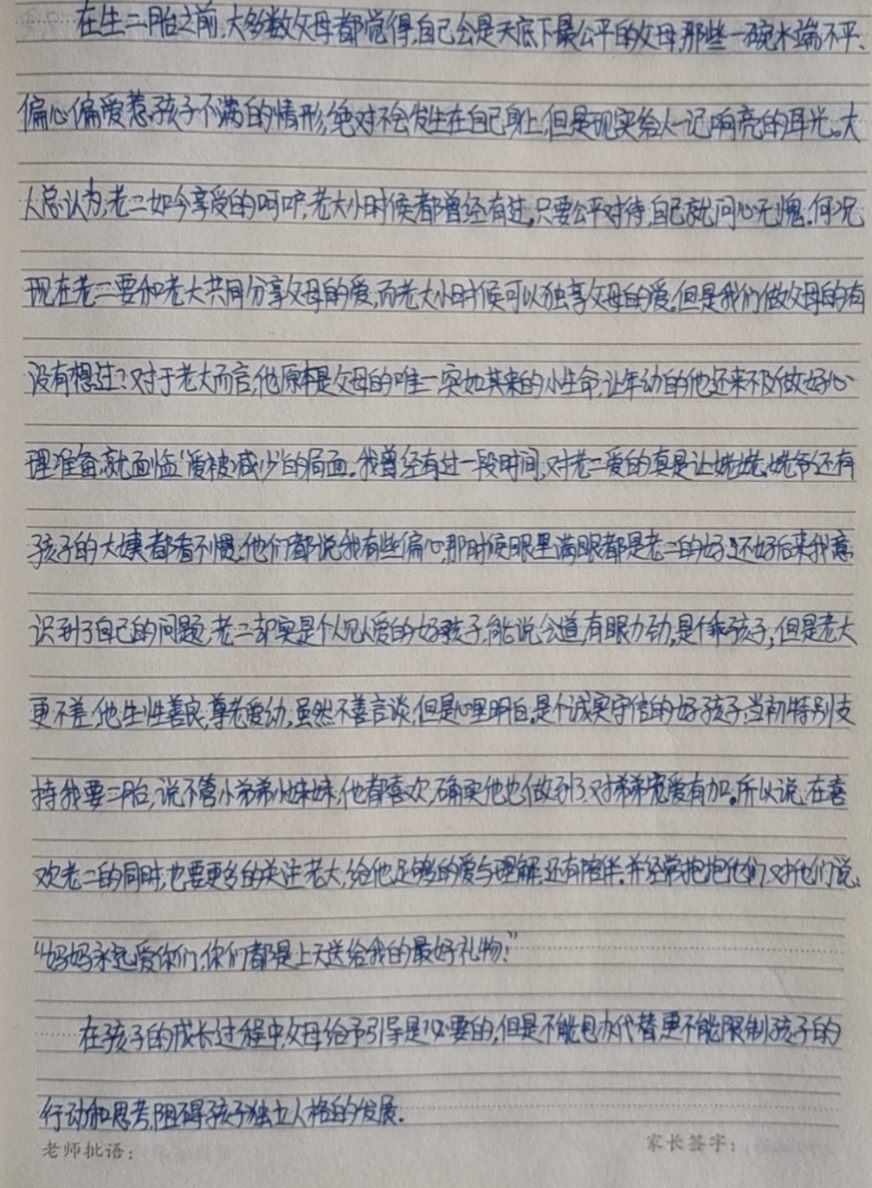 在生二胎之前,大多数父母都觉得,自己会是天底下最公平的父母,那些一碗水端不平、
偏心偏爱惹孩子不满的情形,绝对不会发生在自己身上,但是现实给人一记响亮的耳光。大
人总认为,老二如今享受的呵护,老大小时侯都曾经有过,只要公平对待,自己就问心无愧.何况
现在老二要和老大共同分享父母的爱,而老大小时候可以独享父母的爱,但是我们做父母的有
没有想过?对于老大而言,他原本是父母的唯一,突如其来的小生命,让年幼的他还来不及做好心
理准备,就面临“爱被减少”的局面.我曾经有过一段时间,对老二爱的真是让姥姥,姥爷还有
孩子的大姨都看不惯,他们都说我有些偏心,那时侯眼里满眼都是老二的好,还好后来我意
识到了自己的问题,老二却实是个人见人爱的好孩子,能说会道,有眼力劲,是个乖孩子,但是老大
更不差,他生性善良,尊老爱幼,虽然不善言谈,但是心里明白,是个诚实守信的好孩子,当初特别支
持我要二胎,说不管小弟弟小妹妹,他都喜欢,确实他也做到了,对弟弟宠爱有加。所以说,在喜
欢老二的同时,也要更多的关注老大,给他足够的爱与理解,还有陪伴.并经常抱抱他们,对他们说:
“妈妈永远爱你们,你们都是上天送给我的最好礼物!”
在孩子的成长过程中,父母给予引导是必要的,但是不能包办代替,更不能限制孩子的
行动和思考,阻碍孩子独立人格的发展.
老师批语:
家长签字: